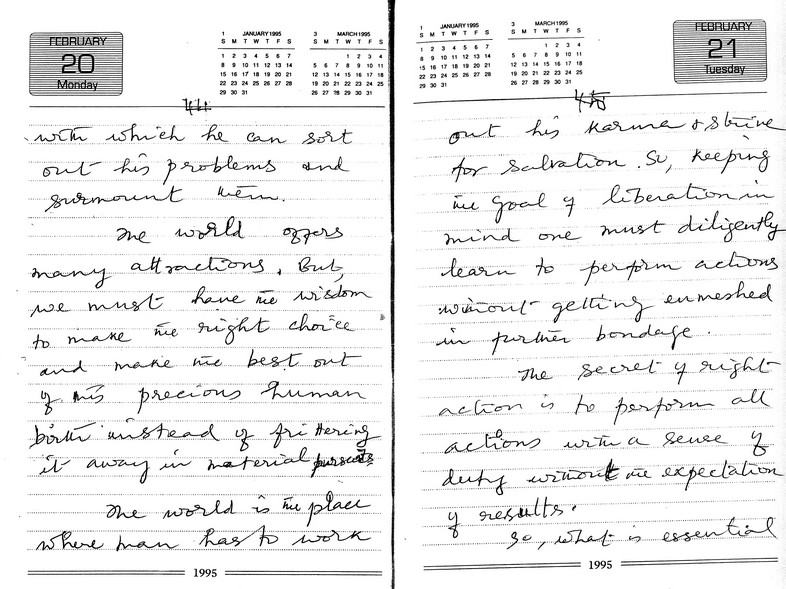 FEBRUARY
20
Monday
1 JANUARY 1995
S M T W T F S
1 2 3 4 5 6 7
8 9 10 11 12 13 14
15 16 17 18 19 20 21
22 23 24 25 26 27 28
29 30 31
3 MARCH 1995
S M T W T F S
1 2 3 4
5 6 7 8 9 10 11
12 13 14 15 16 17 18
19 20 21 22 23 24 25
26 27 28 29 30 31
44
with which he can sort
out his problems and
surmount them.
The world offers
many attractions. But,
we must have the wisdom
to make the right choice
and make the best out
of this precious human
birth instead of frittering
it away in material pursuits
The world is the place
where man has to work
1995
1 JANUARY 1995
S M T W T F S
1 2 3 4 5 6 7
8 9 10 11 12 13 14
15 16 17 18 19 20 21
22 23 24 25 26 27 28
29 30 31
3 MARCH 1995
S M T W T F S
1 2 3 4
5 6 7 8 9 10 11
12 13 14 15 16 17 18
19 20 21 22 23 24 25
26 27 28 29 30 31
FEBRUARY
21
Tuesday
45
out his karma & strive
for salvation. So, keeping
the goal of liberation in
mind one must diligently
learn to perform actions
without getting enmeshed
in further bondage.
The secret of right
action is to perform all
actions with a sense of
duty without the expectation
of results.
So, what is essential
1995